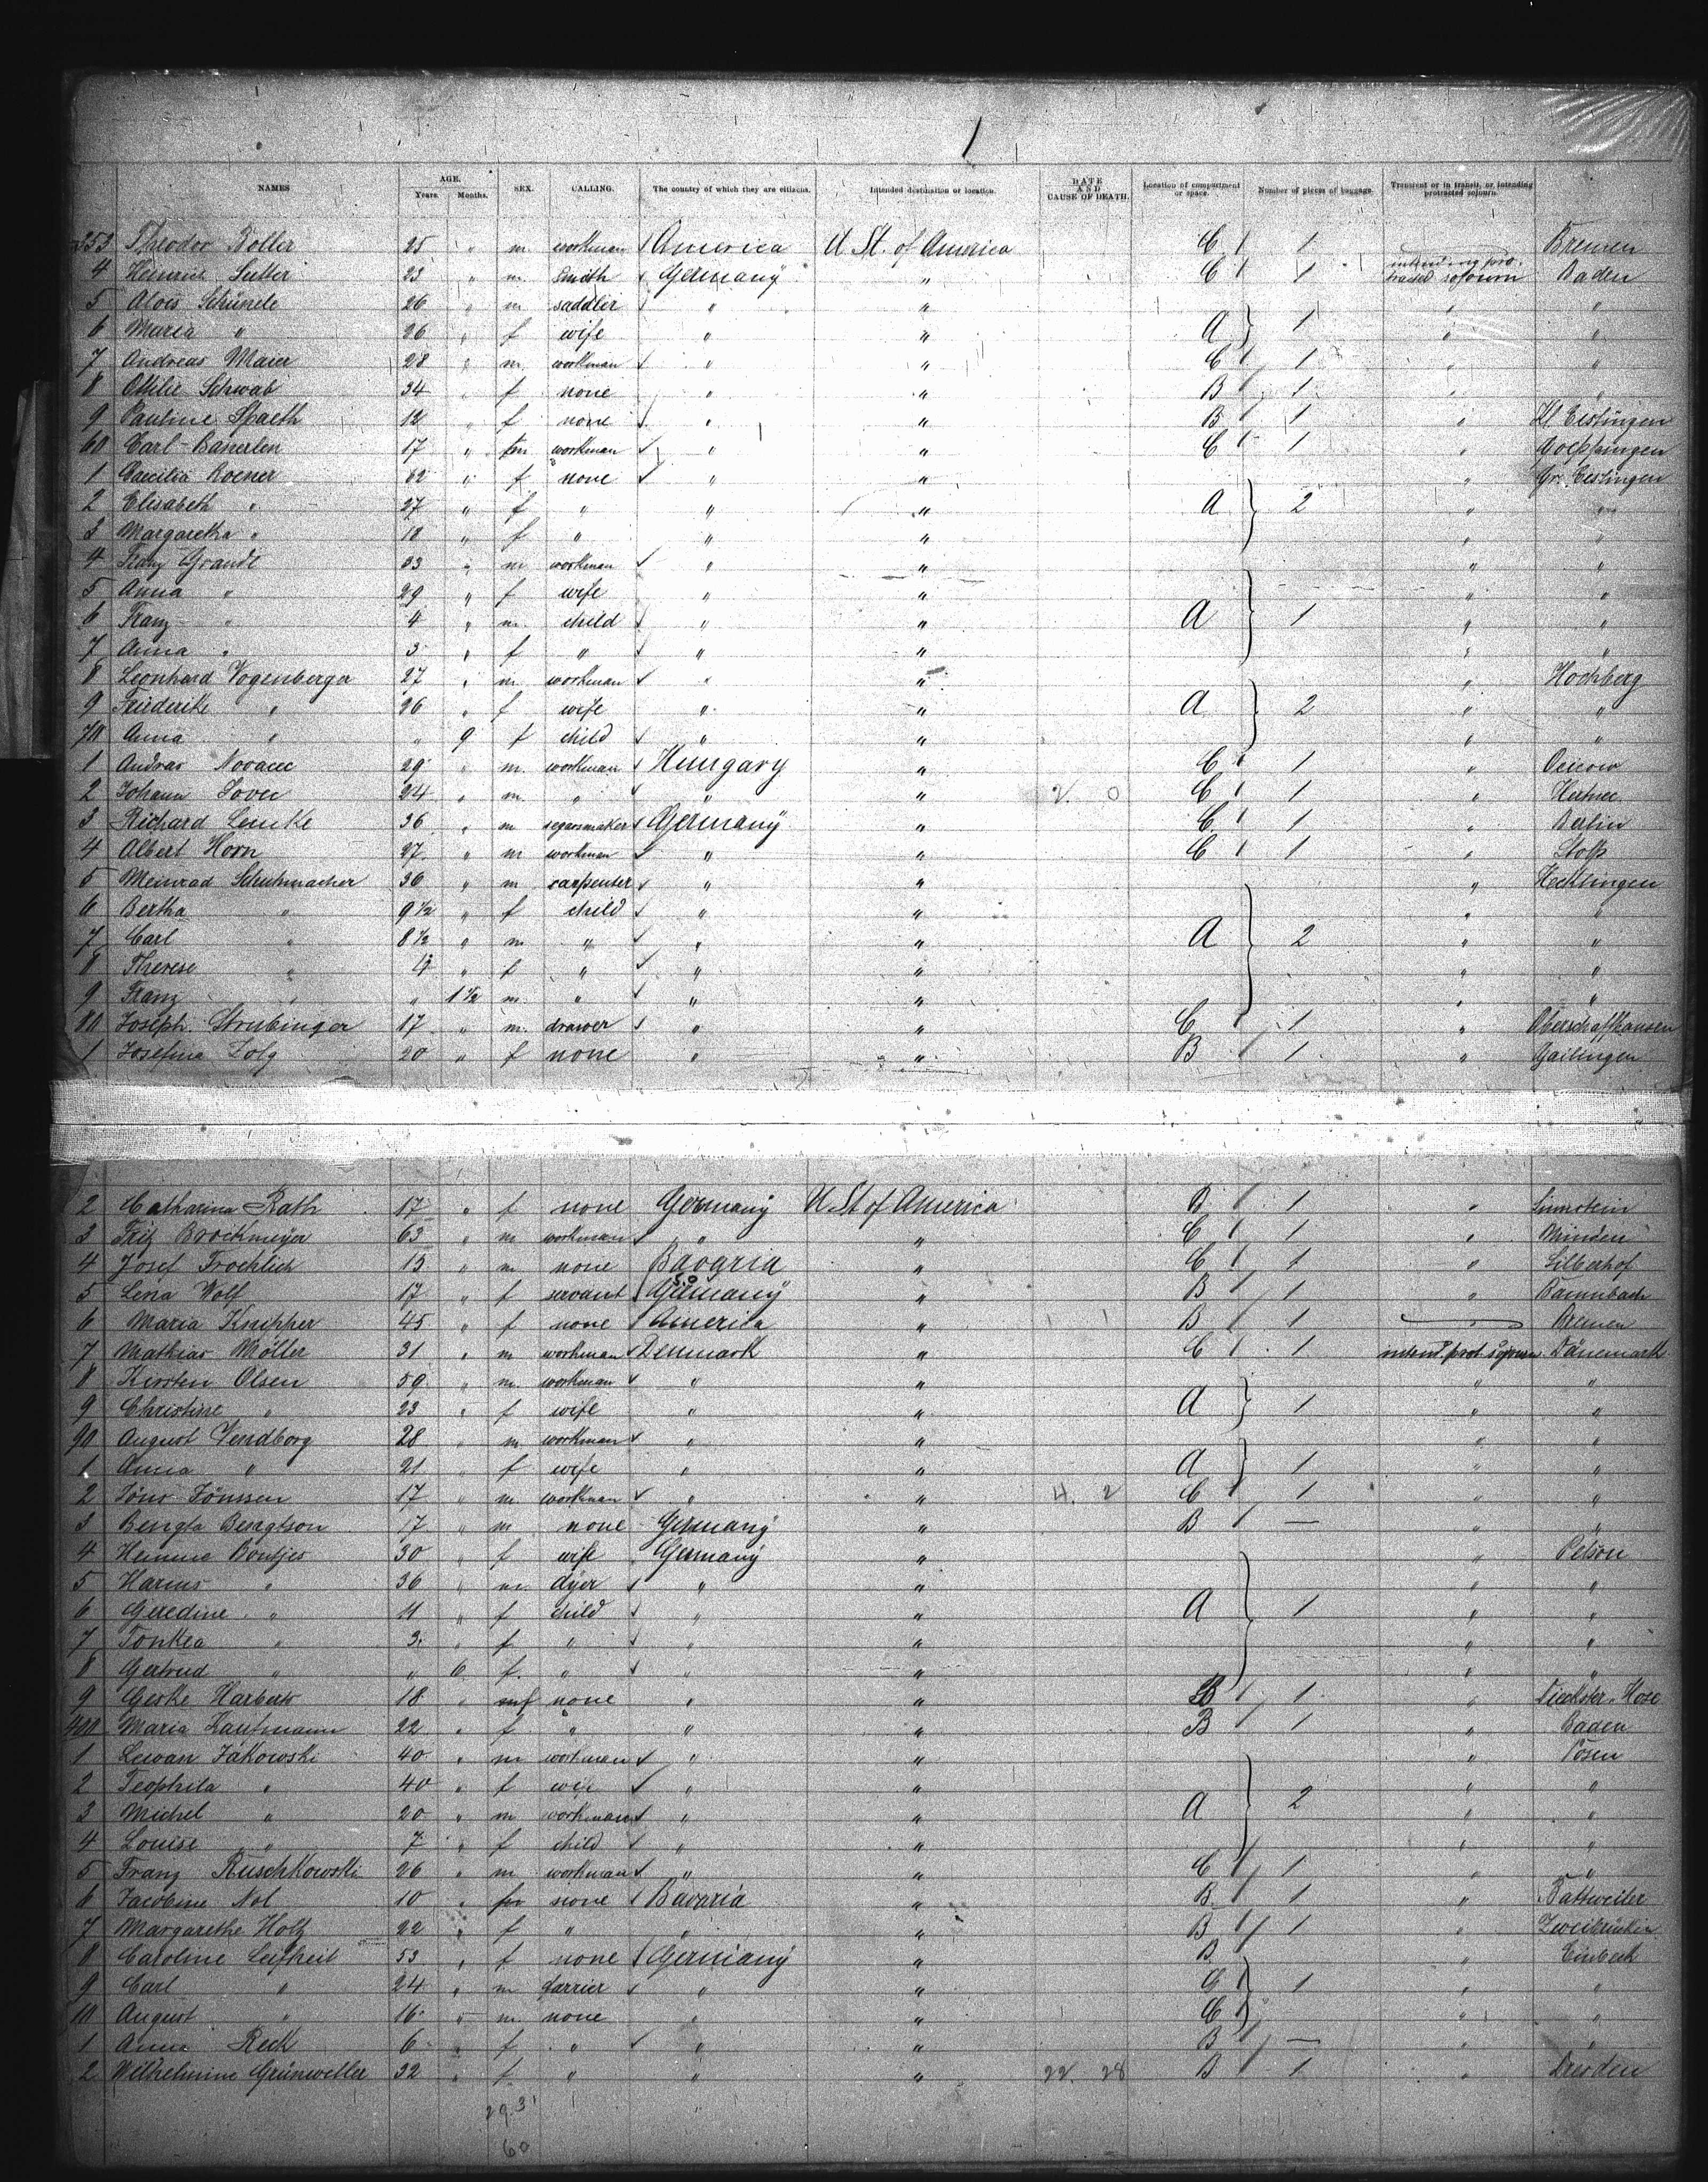 1
NAMES AGE. Years. Months. SEX. CALLING. The country of which they are citizens. Intended destination or location. DATE AND CAUSE OF DEATH. Location of compartment or space. Number of pieces of baggage. Transient or in transit, or, intending protracted sojourn.
353 Theodor Boller 25 " m workman America U St. of America C 1 Bremen
4 Heinrich Sutter 23 " m. Smith Germany " C 1 intending protracted sojourn Baden
5 Alois Schinele 26 " m saddler " " " "
6 Maria " 26 " f wife " " A 1 " "
7 Andreas Maier 28 " m workman " " C 1 " "
8 Ottilie Schwab 34 " f none " " B 1 " "
9 Pauline Spaeth 12 " f none " " B 1 " Kl. Eislingen
60 Carl Bauerlen 17 " m workman " " C 1 " Goeppingen
1 Caecilia Roener 62 " f none " " " Gr. Eislingen
2 Elisabeth " 27 " f " " " A 2 " "
3 Margaretha " 18 " f " " " " "
4 Franz Grandt 33 " m workman " " " "
5 Anna " 29 " f wife " " " "
6 Franz " 4 " m. child " " A 1 " "
7 Anna " 3 " f " " " " "
8 Leonhard Vogenberger 27 " m workman " " " Hochberg
9 Friederike " 26 " f wife " " A 2 " "
70 Anna " " 9 f child " " " "
1 Andras Novacec 29 " m. workman Hungary " C 1 "
2 Johann Tover 24 " m. " " " 2. 0 C 1 "
3 Richard Lemke 36 " m segarmaker Germany " C 1 " Berlin
4 Albert Horn 27 " m workman " " C 1 " Stolp
5 Meinrad Schuhmacher 36 " m carpenter " " " Hechlingen
6 Bertha " 9 1/2 " f child " " " "
7 Carl " 8 1/2 " m " " " A 2 " "
8 Therese " 4 " f " " " " "
9 Franz " " 1 1/2 m. " " " " "
80 Joseph Strubinger 17 " m. drawer " " C 1 " Oberschaffhausen
1 Josefina Zolg 20 " f none " " B 1 " Gailingen
2 Catharina Rath 17 " f none Germany U. St of America B 1 "
3 Fritz Brockmeyer 63 " m workman " " C 1 " Minden
4 Josef Froehlich 15 " m none Bavaria " C 1 " Silberhof
5 Lena Wolf 17 " f servant Germany " B 1 "
6 Maria Knipher 45 " f none America " 1 1 B 1 Bremen
7 Mathias Möller 31 " m workman Denmark " C 1 intend. prot. sojourn Dänemark
8 Kirsten Olsen 59 " m workman " " " "
9 Christine " 23 " f wife " " A 1 " "
90 August Vendborg 28 " m workman " " " "
1 Anna " 21 " f wife " " A 1 " "
2 Jöns Jönssen 17 " m workman " " 4. 2 C 1 " "
3 Bengta Bengtson 17 " m none Germany " B — " "
4 Hemme Bontjes 30 " f wife Germany " "
5 Harms " 36 " m dyer " " " "
6 Geredine " 11 " f child " " A 1 " "
7 Tonkea " 3 " f " " " " "
8 Gertrud " " 6 f. " " " " "
9 Geske Harberts 18 " f none " " B 1 "
400 Maria Kaufmann 22 " f " " " B 1 " Baden
1 Lewan Jakowski 40 " m workman " " " Posen
2 Teophila " 40 " f wife " " " "
3 Michel " 20 " m workman " " A 2 " "
4 Louise " 7 " f child " " " "
5 Franz Ruschkowski 26 " m workman " " C 1 " "
6 Jacobine Nol 10 " none Bavaria " B 1 " Battweiler
7 Margarethe Holtz 22 " f " " " B 1 " Zweibrücken
8 Caroline Leifheit 53 " f none Germany " B " Einbeck
9 Carl " 24 " m farrier " " C 1 " "
10 August " 16 " m none " " C " "
1 Anna Reck 6 " f " " " B — " "
2 Wilhelmine Grünweller 32 " f " " " 22. 28 B 1 " Dresden
29.31
60